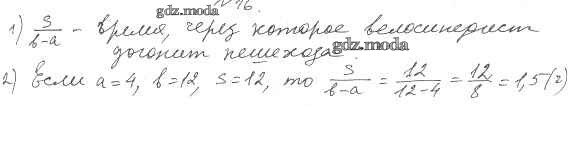 № 46.
gdz.moda
1) S/(b-a) - время, через которое велосипедист
догонит пешехода.
gdz.moda
2) Если a=4, b=12, S=12, то S/(b-a) = 12/(12-4) = 12/8 = 1,5 (ч)